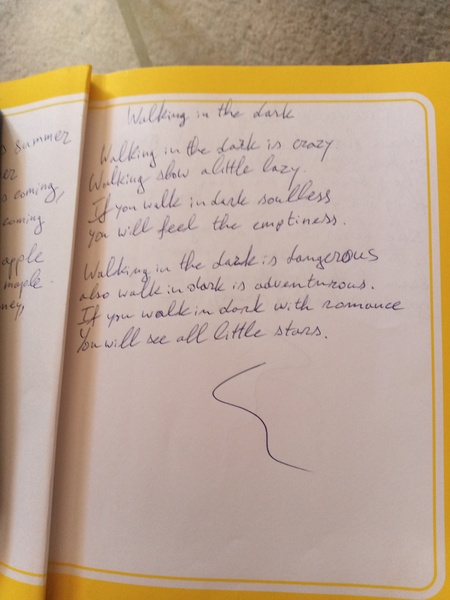 summer
er
coming,
coming
apple
maple.
ney,
Walking in the dark
Walking in the dark is crazy
Walking slow alittle lazy.
If you walk in dark soulless
you will feel the emptiness.
Walking in the dark is dangerous
also walk in dark is adventurous.
If you walk in dark with romance
You will see all little stars.